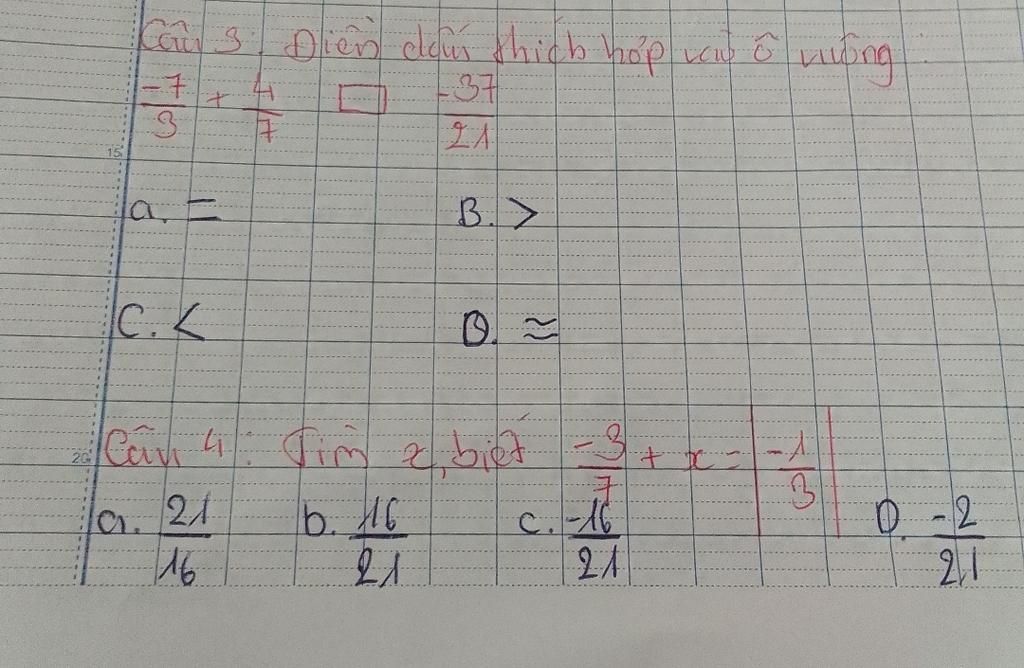 Câu 3: Điền dấu thích hợp vào ô vuông:
-7/3 + 4/7 □ -37/21
15
a. = B. >
C. < D. ≈
20
Câu 4: Tìm x, biết -3/7 + x = |-1/3|
a. 21/16 b. 16/21 c. -16/21 D. -2/21